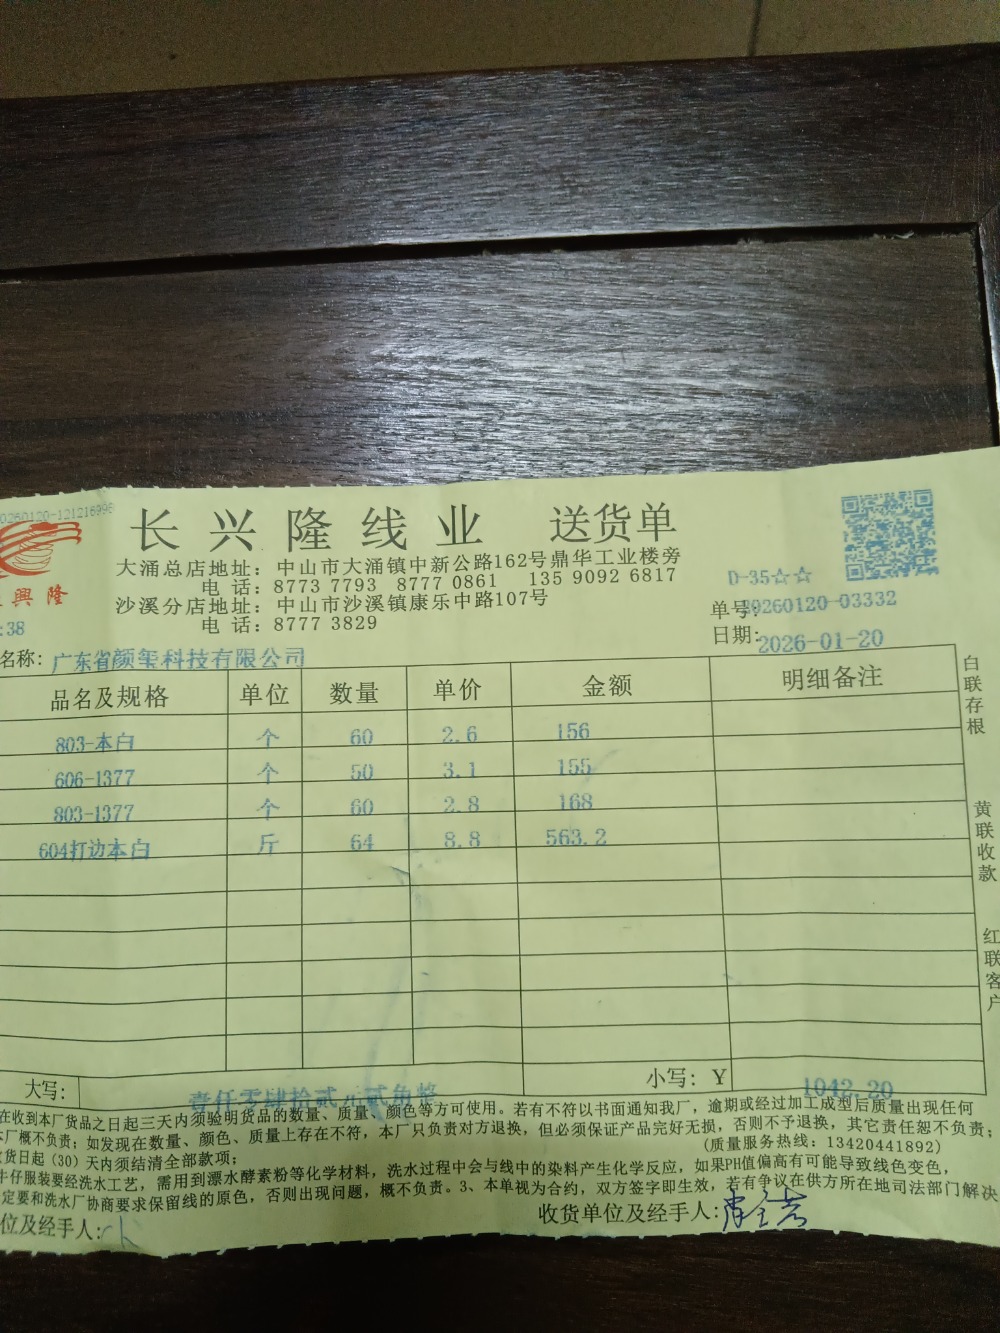 0260120-121216996
長興隆
:38
长兴隆线业 送货单
大涌总店地址：中山市大涌镇中新公路162号鼎华工业楼旁
电 话：8773 7793 8777 0861 135 9092 6817
沙溪分店地址：中山市沙溪镇康乐中路107号
电 话：8777 3829
D-35☆☆
单号:20260120-03332
日期:2026-01-20
名称: 广东省颜玺科技有限公司
品名及规格 单位 数量 单价 金额 明细备注
803-本白 个 60 2.6 156
606-1377 个 50 3.1 155
803-1377 个 60 2.8 168
604打边本白 斤 64 8.8 563.2
白联存根
黄联收款
红联客户
大写: 壹仟零肆拾贰元贰角整 小写: Y 1042.20
在收到本厂货品之日起三天内须验明货品的数量、质量、颜色等方可使用。若有不符以书面通知我厂，逾期或经过加工成型后质量出现任何
本厂概不负责；如发现在数量、颜色、质量上存在不符，本厂只负责对方退换，但必须保证产品完好无损，否则不予退换，其它责任恕不负责；
货日起（30）天内须结清全部款项； (质量服务热线：13420441892)
牛仔服装要经洗水工艺，需用到漂水酵素粉等化学材料，洗水过程中会与线中的染料产生化学反应，如果PH值偏高有可能导致线色变色，
定要和洗水厂协商要求保留线的原色，否则出现问题，概不负责。3、本单视为合约，双方签字即生效，若有争议在供方所在地司法部门解决
位及经手人: 收货单位及经手人: